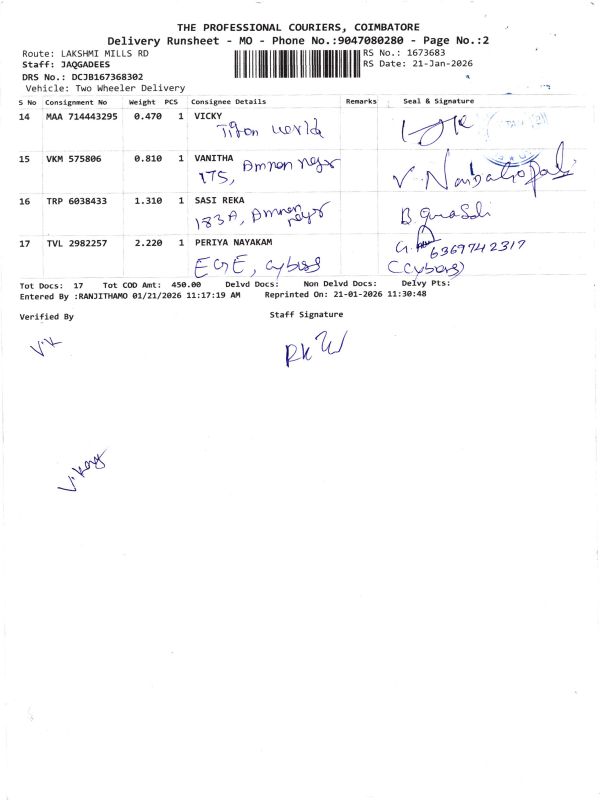 THE PROFESSIONAL COURIERS, COIMBATORE
Delivery Runsheet - MO - Phone No.:9047080280 - Page No.:2
Route: LAKSHMI MILLS RD RS No.: 1673683
Staff: JAQGADEES RS Date: 21-Jan-2026
DRS No.: DCJB167368302
Vehicle: Two Wheeler Delivery
S No Consignment No Weight PCS Consignee Details Remarks Seal & Signature
14 MAA 714443295 0.470 1 VICKY
Titan world
15 VKM 575806 0.810 1 VANITHA
175,
16 TRP 6038433 1.310 1 SASI REKA
183A,
17 TVL 2982257 2.220 1 PERIYA NAYAKAM
6369742317
Tot Docs: 17 Tot COD Amt: 450.00 Delvd Docs: Non Delvd Docs: Delvy Pts:
Entered By :RANJITHAMO 01/21/2026 11:17:19 AM Reprinted On: 21-01-2026 11:30:48
Verified By Staff Signature
V.K